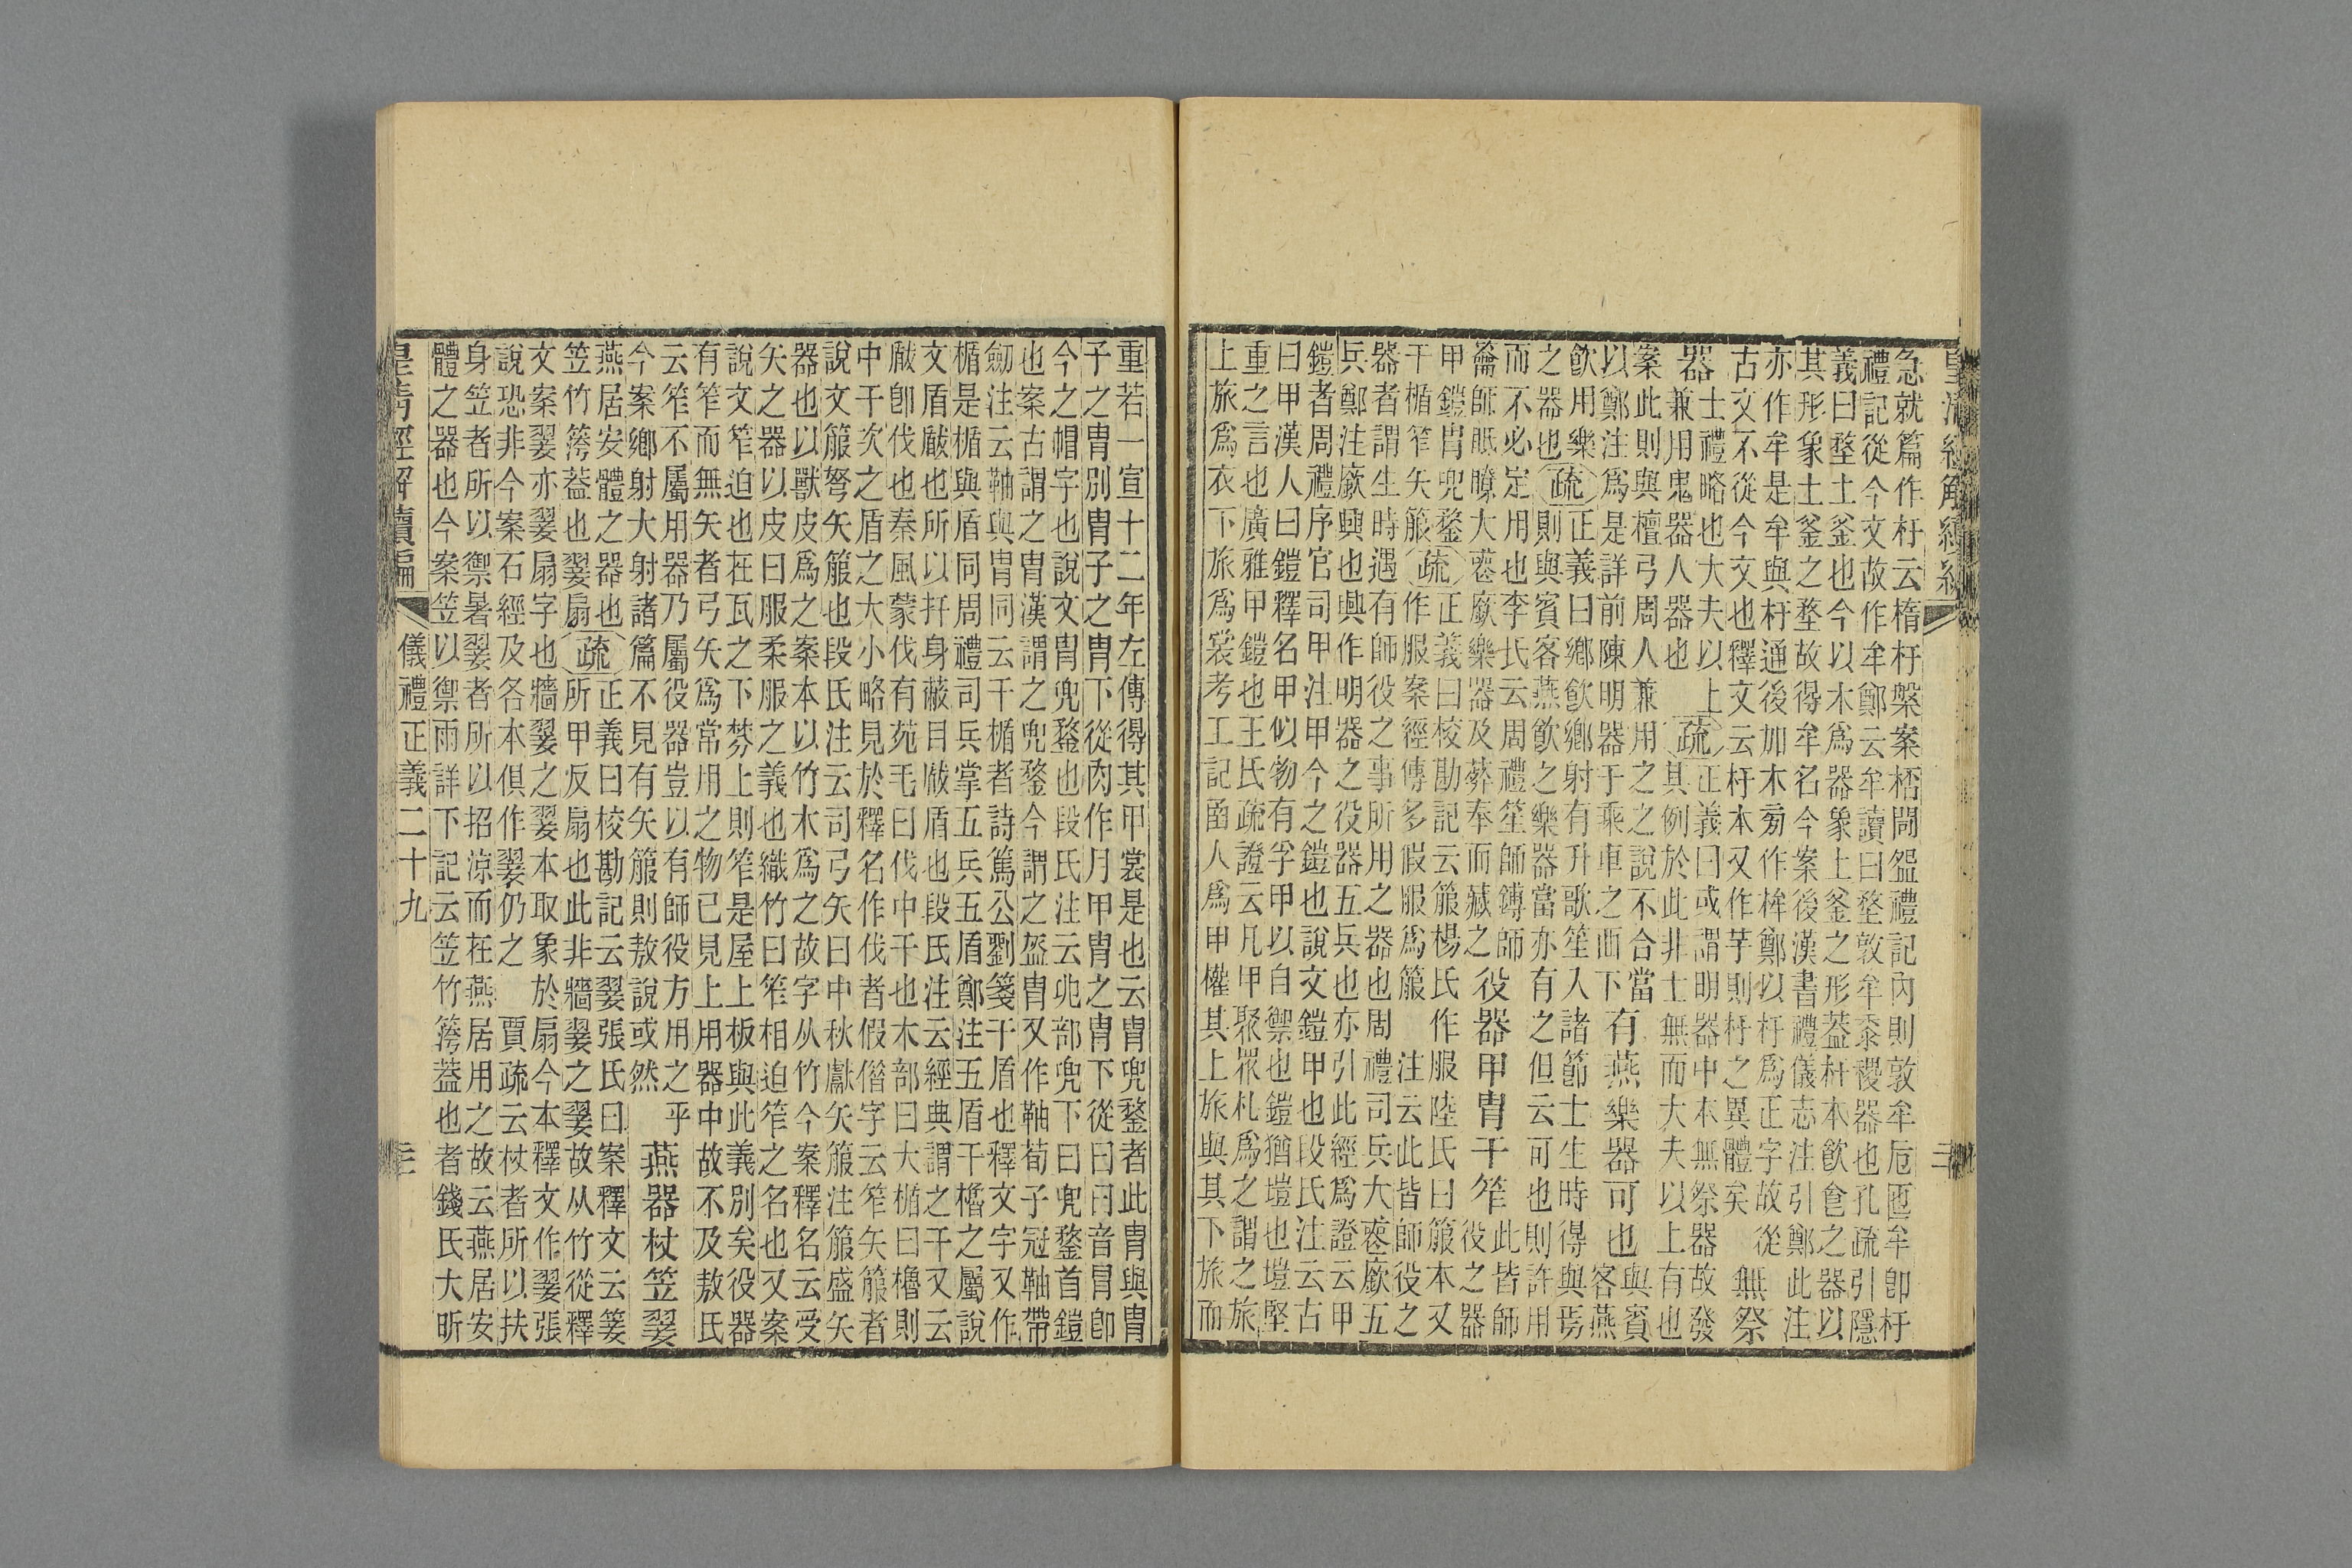 皇清經解續編
急就篇作杅云楕杅槃案桮閜盌禮記內則敦牟卮匜牟卽杅
禮記從今文故作牟鄭云牟讀曰堥敦牟黍稷器也孔疏引隱
義曰堥土釜也今以木爲器象土釜之形葢杅本飮食之器以
其形象土釜之堥故得牟名今案後漢書禮儀志注引鄭此注
亦作牟是牟與杅通後加木旁作桙鄭以杅爲正字故從
古文不從今文也釋文云杅本又作芋則杅之異體矣 無祭
器 士禮略也大夫以上
兼用鬼器人器也 疏 正義曰或謂明器中本無祭器故發
其例於此非士無而大夫以上有也
案此則與檀弓周人兼用之之說不合當
以鄭注爲是詳前陳明器于乘車之西下 有燕樂器可也 與賓
客燕
飮用樂
之器也 疏 正義曰鄉飮鄉射有升歌笙入諸節士生時得與焉
則與賓客燕飮之樂器當亦有之但云可也則許用
而不必定用也李氏云周禮笙師鏄師
籥師眡瞭大喪廞樂器及葬奉而藏之 役器甲冑干笮 此皆師
役之器
甲鎧冑兜鍪
干楯笮矢箙 疏 正義曰校勘記云箙楊氏作服陸氏曰箙本又
作服案經傳多假服爲箙 注云此皆師役之
器者謂生時遇有師役之事所用之器也周禮司兵大喪廞五
兵鄭注廞興也興作明器之役器五兵也亦引此經爲證云甲
鎧者周禮序官司甲注甲今之鎧也說文鎧甲也段氏注云古
曰甲漢人曰鎧釋名甲似物有孚甲以自禦也鎧猶塏也塏堅
重之言也廣雅甲鎧也王氏疏證云凡甲聚眾札爲之謂之旅
上旅爲衣下旅爲裳考工記函人爲甲權其上旅與其下旅而
重若一宣十二年左傳得其甲裳是也云冑兜鍪者此冑與冑
子之冑別冑子之冑下從肉作月甲冑之冑下從曰曰音冒卽
今之帽字也說文冑兜鍪也段氏注云兆部兜下曰兜鍪首鎧
也案古謂之冑漢謂之兜鍪今謂之盔冑又作䩜荀子冠䩜帶
劒注云䩜與冑同云干楯者詩篤公劉箋干盾也釋文字又作
楯是楯與盾同周禮司兵掌五兵五盾鄭注五盾干櫓之屬說
文盾瞂也所以扞身蔽目瞂盾也段氏注云經典謂之干又云
瞂卽伐也秦風蒙伐有苑毛曰伐中干也木部曰大楯曰櫓則
中干次之盾之大小略見於釋名作伐者假僭字云笮矢箙者
說文箙弩矢箙也段氏注云司弓矢曰中秋獻矢箙注箙盛矢
器也以獸皮爲之案本以竹木爲之故字从竹今案釋名云受
矢之器以皮曰服柔服之義也織竹曰笮相迫笮之名也又案
說文笮迫也在瓦之下棼上則笮是屋上板與此義別矣役器
有笮而無矢者弓矢爲常用之物已見上用器中故不及敖氏
云笮不屬用器乃屬役器豈以有師役方用之乎
今案鄉射大射諸篇不見有矢箙則敖說或然 燕器杖笠翣
燕居安體之器也
笠竹䈉葢也翣扇 疏 正義曰校勘記云翣張氏曰案釋文云箑
所甲反扇也此非牆翣之翣故从竹從釋
文案翣亦翣扇字也牆翣之翣本取象於扇今本釋文作翣張
說恐非今案石經及各本俱作翣仍之 賈疏云杖者所以扶
身笠者所以禦暑翣者所以招涼而在燕居用之故云燕居安
體之器也今案笠以禦雨詳下記云笠竹䈉葢也者錢氏大昕
皇清經解續編 儀禮正義二十九